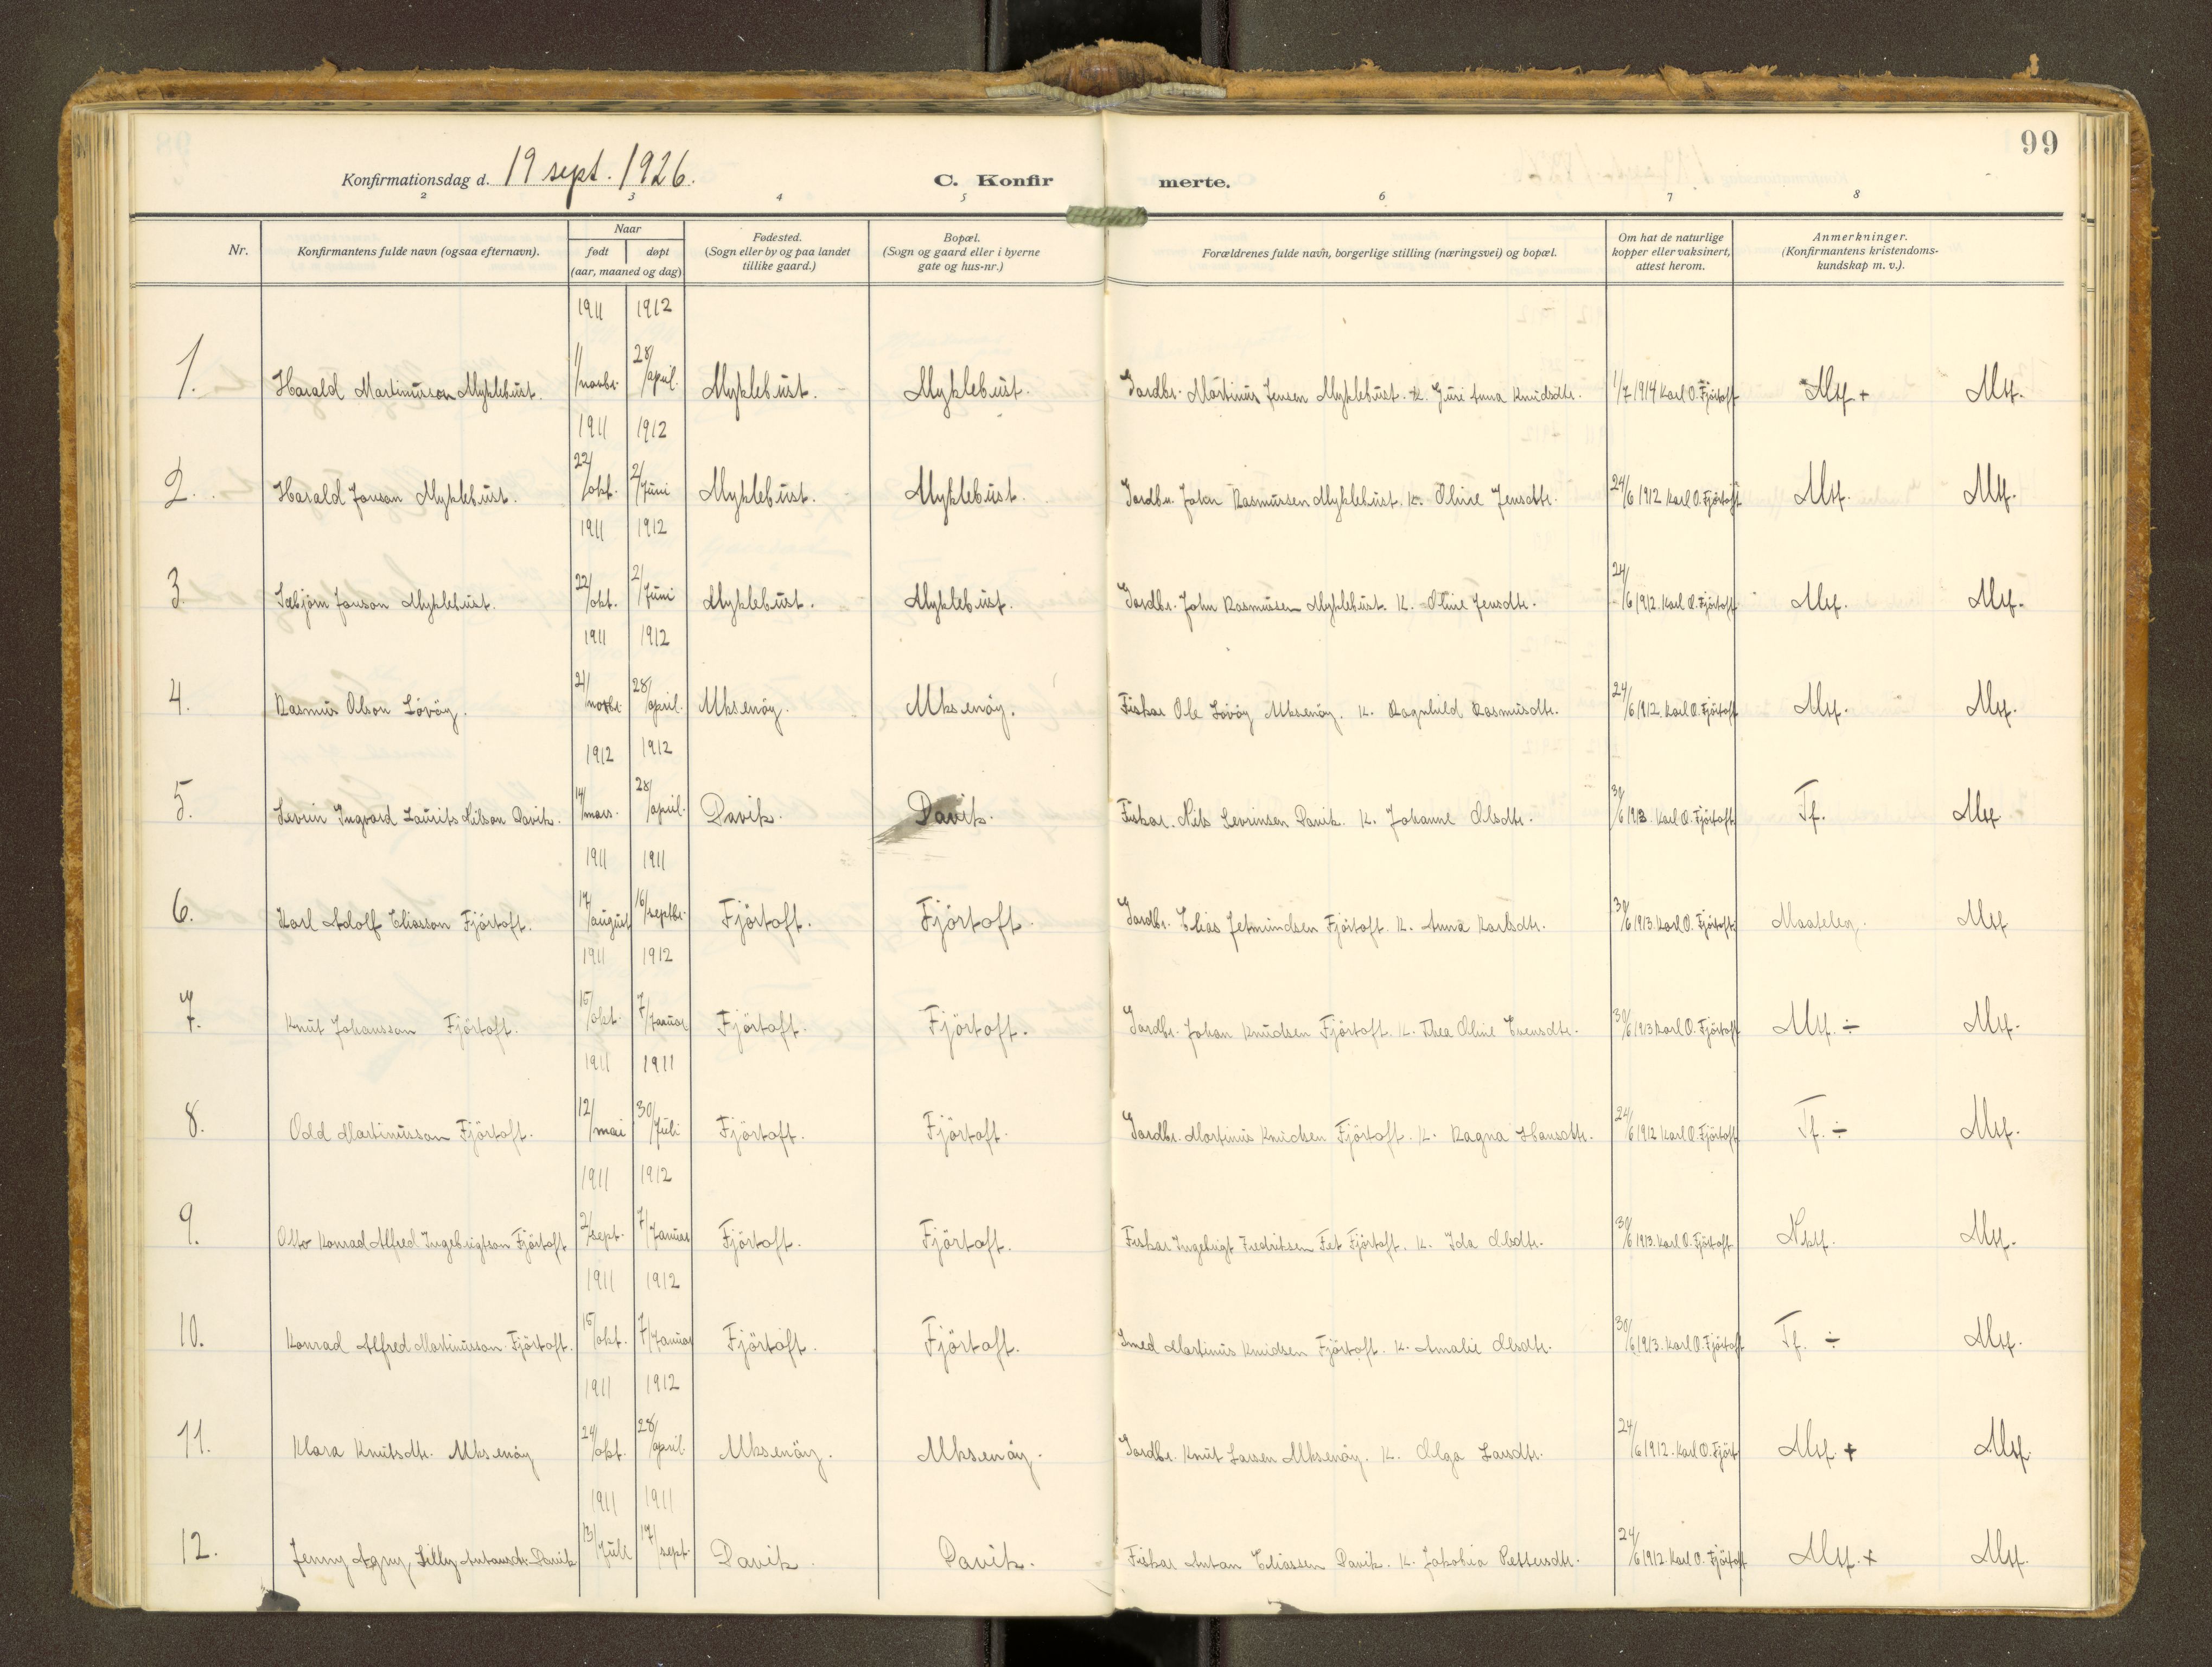 99
Konfirmationsdag d. 19 sept. 1926. C. Konfirmerte.
2 3 4 5 6 7 8
Nr. Konfirmantens fulde navn (ogsaa efternavn). Naar født døpt (aar, maaned og dag) Fødested. (Sogn eller by og paa landet tillike gaard.) Bopæl. (Sogn og gaard eller i byerne gate og hus-nr.) Forældrenes fulde navn, borgerlige stilling (næringsvei) og bopæl. Om hat de naturlige kopper eller vaksinert, attest herom. Anmerkninger. (Konfirmantens kristendomskundskap m. v.).
1911 1912
1. Harald Martinusson Myklebust. 1/novbr. 28/april. Myklebust. Myklebust. Jordbr. Martinus Jensen Myklebust. K. Juri Anna Knudsdtr. 1/7 1914 Karl O. Fjörtoft Mtf + Mtf.
1911 1912
2. Harald Jonson Myklebust. 22/okt. 2/Juni Myklebust. Myklebust. Jordbr. John Rasmussen Myklebust. K. Oline Jensdtr. 24/6 1912 Karl O. Fjörtoft Mtf. Mtf.
1911 1912
3. Sæbjörn Jonson Myklebust. 22/okt. 2/Juni Myklebust. Myklebust. Jordbr. John Rasmussen Myklebust. K. Oline Jensdtr. 24/6 1912. Karl O. Fjörtoft Mtf. Mtf.
1911 1912
4. Rasmus Olson Lövöy. 21/novbr. 28/april. Uksenöy. Uksenöy. Fiskar Ole Lövöy Uksenöy. K. Ragnhild Rasmusdtr. 24/6 1912. Karl O. Fjörtoft Mtf. Mtf.
1912 1912
5. Levrin Ingvard Laurits Nilson Davik. 14/mars. 28/april. Davik. Davik. Fiskar. Nils Levrinsen Davik. K. Johanne Olsdtr. 30/6 1913. Karl O. Fjörtoft Tf. Mtf
1911 1911
6. Karl Adolf Eliasson Fjörtoft. 17/august 16/septbr. Fjörtoft. Fjörtoft. Jordbr. Elias Jetmundsen Fjörtoft. K. Anna Karlsdtr. 30/6 1913. Karl O. Fjörtoft Maateleg. Mtf
1911 1912
7. Knut Johansson Fjörtoft. 15/okt. 7/Januar Fjörtoft. Fjörtoft. Jordbr. Johan Knudsen Fjörtoft. K. Thea Oline Evensdtr. 30/6 1913 Karl O. Fjörtoft Mtf. ÷ Mtf.
1911 1911
8. Odd Martinusson Fjörtoft. 12/mai 30/Juli Fjörtoft. Fjörtoft. Jordbr. Martinus Knudsen Fjörtoft. K. Ragna Hansdtr. 24/6 1912 Karl O. Fjörtoft Tf. ÷ Mtf.
1911 1912
9. Otto Konrad Alfred Ingebrigtson Fjörtoft 2/sept. 7/Januar Fjörtoft. Fjörtoft. Fiskar Ingebrigt Fredriksen Fet Fjörtoft. K. Ida Olsdtr. 30/6 1913. Karl O. Fjörtoft Nktf. Mtf.
1911 1912
10. Konrad Alfred Martinusson Fjörtoft. 15/okt. 7/Januar Fjörtoft. Fjörtoft. Smed Martinus Knudsen Fjörtoft. K. Amalie Olsdtr. 30/6 1913. Karl O. Fjörtoft Tf. ÷ Mtf.
1911 1912
11. Klara Knutsdtr. Uksenöy 24/okt. 28/april. Uksenöy. Uksenöy. Jordbr. Knut Larsen Uksenöy. K. Olga Larsdtr. 24/6 1912. Karl O. Fjört Mtf. + Mtf.
1911 1911
12. Jenny Agny Lilly Antonsdtr. Davik 13/Juli 17/sept. Davik. Davik. Fiskar Anton Eliassen Davik. K. Jakobia Pettersdtr. 24/6 1912. Karl O. Fjörtoft Mtf. + Mtf.